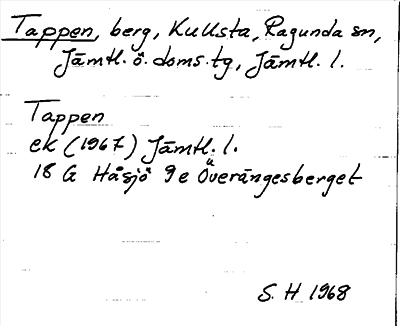 Tappen, berg, Kullsta, Ragunda sn,
Jämtl. ö. doms. tg, Jämtl. l.
Tappen
ek (1967) Jämtl. l.
18 G Håsjö 9 e Överängesberget
S. H 1968